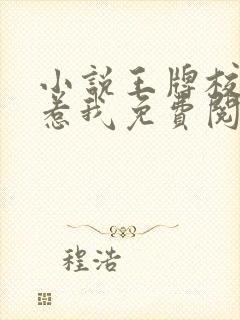 小说王牌校
惹我免費阅
程浩